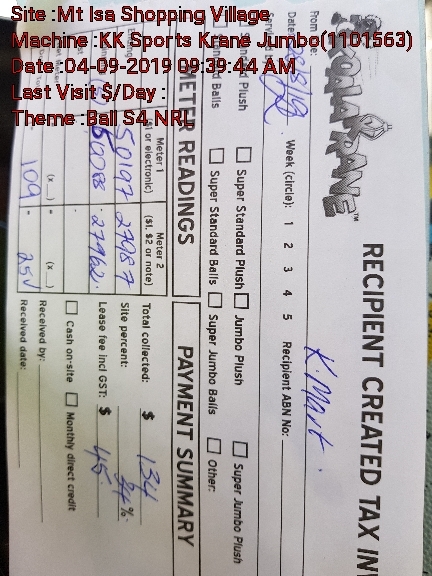 Site :Mt Isa Shopping Village
Machine :KK Sports Krane Jumbo(1101563)
Date :04-09-2019 09:39:44 AM
Last Visit $/Day :
Theme :Ball S4 NRL
KOALA KRANE™
RECIPIENT CREATED TAX IN
From
K. Mart.
Date
Week (circle): 1 2 3 4 5
Recipient ABN No:
Standard Plush
Super Standard Plush
Jumbo Plush
Super Jumbo Plush
Balls
Super Standard Balls
Super Jumbo Balls
Other:
METER READINGS
PAYMENT SUMMARY
Meter 1
($1 or electronic)
Meter 2
($1, $2 or note)
50197
27987
50088
27962.
(x
)
(x
)
109
25
Total collected: $ 134
Site percent: 34 %
Lease fee incl GST: $ 45
Cash on-site
Monthly direct credit
Received by:
Received date: